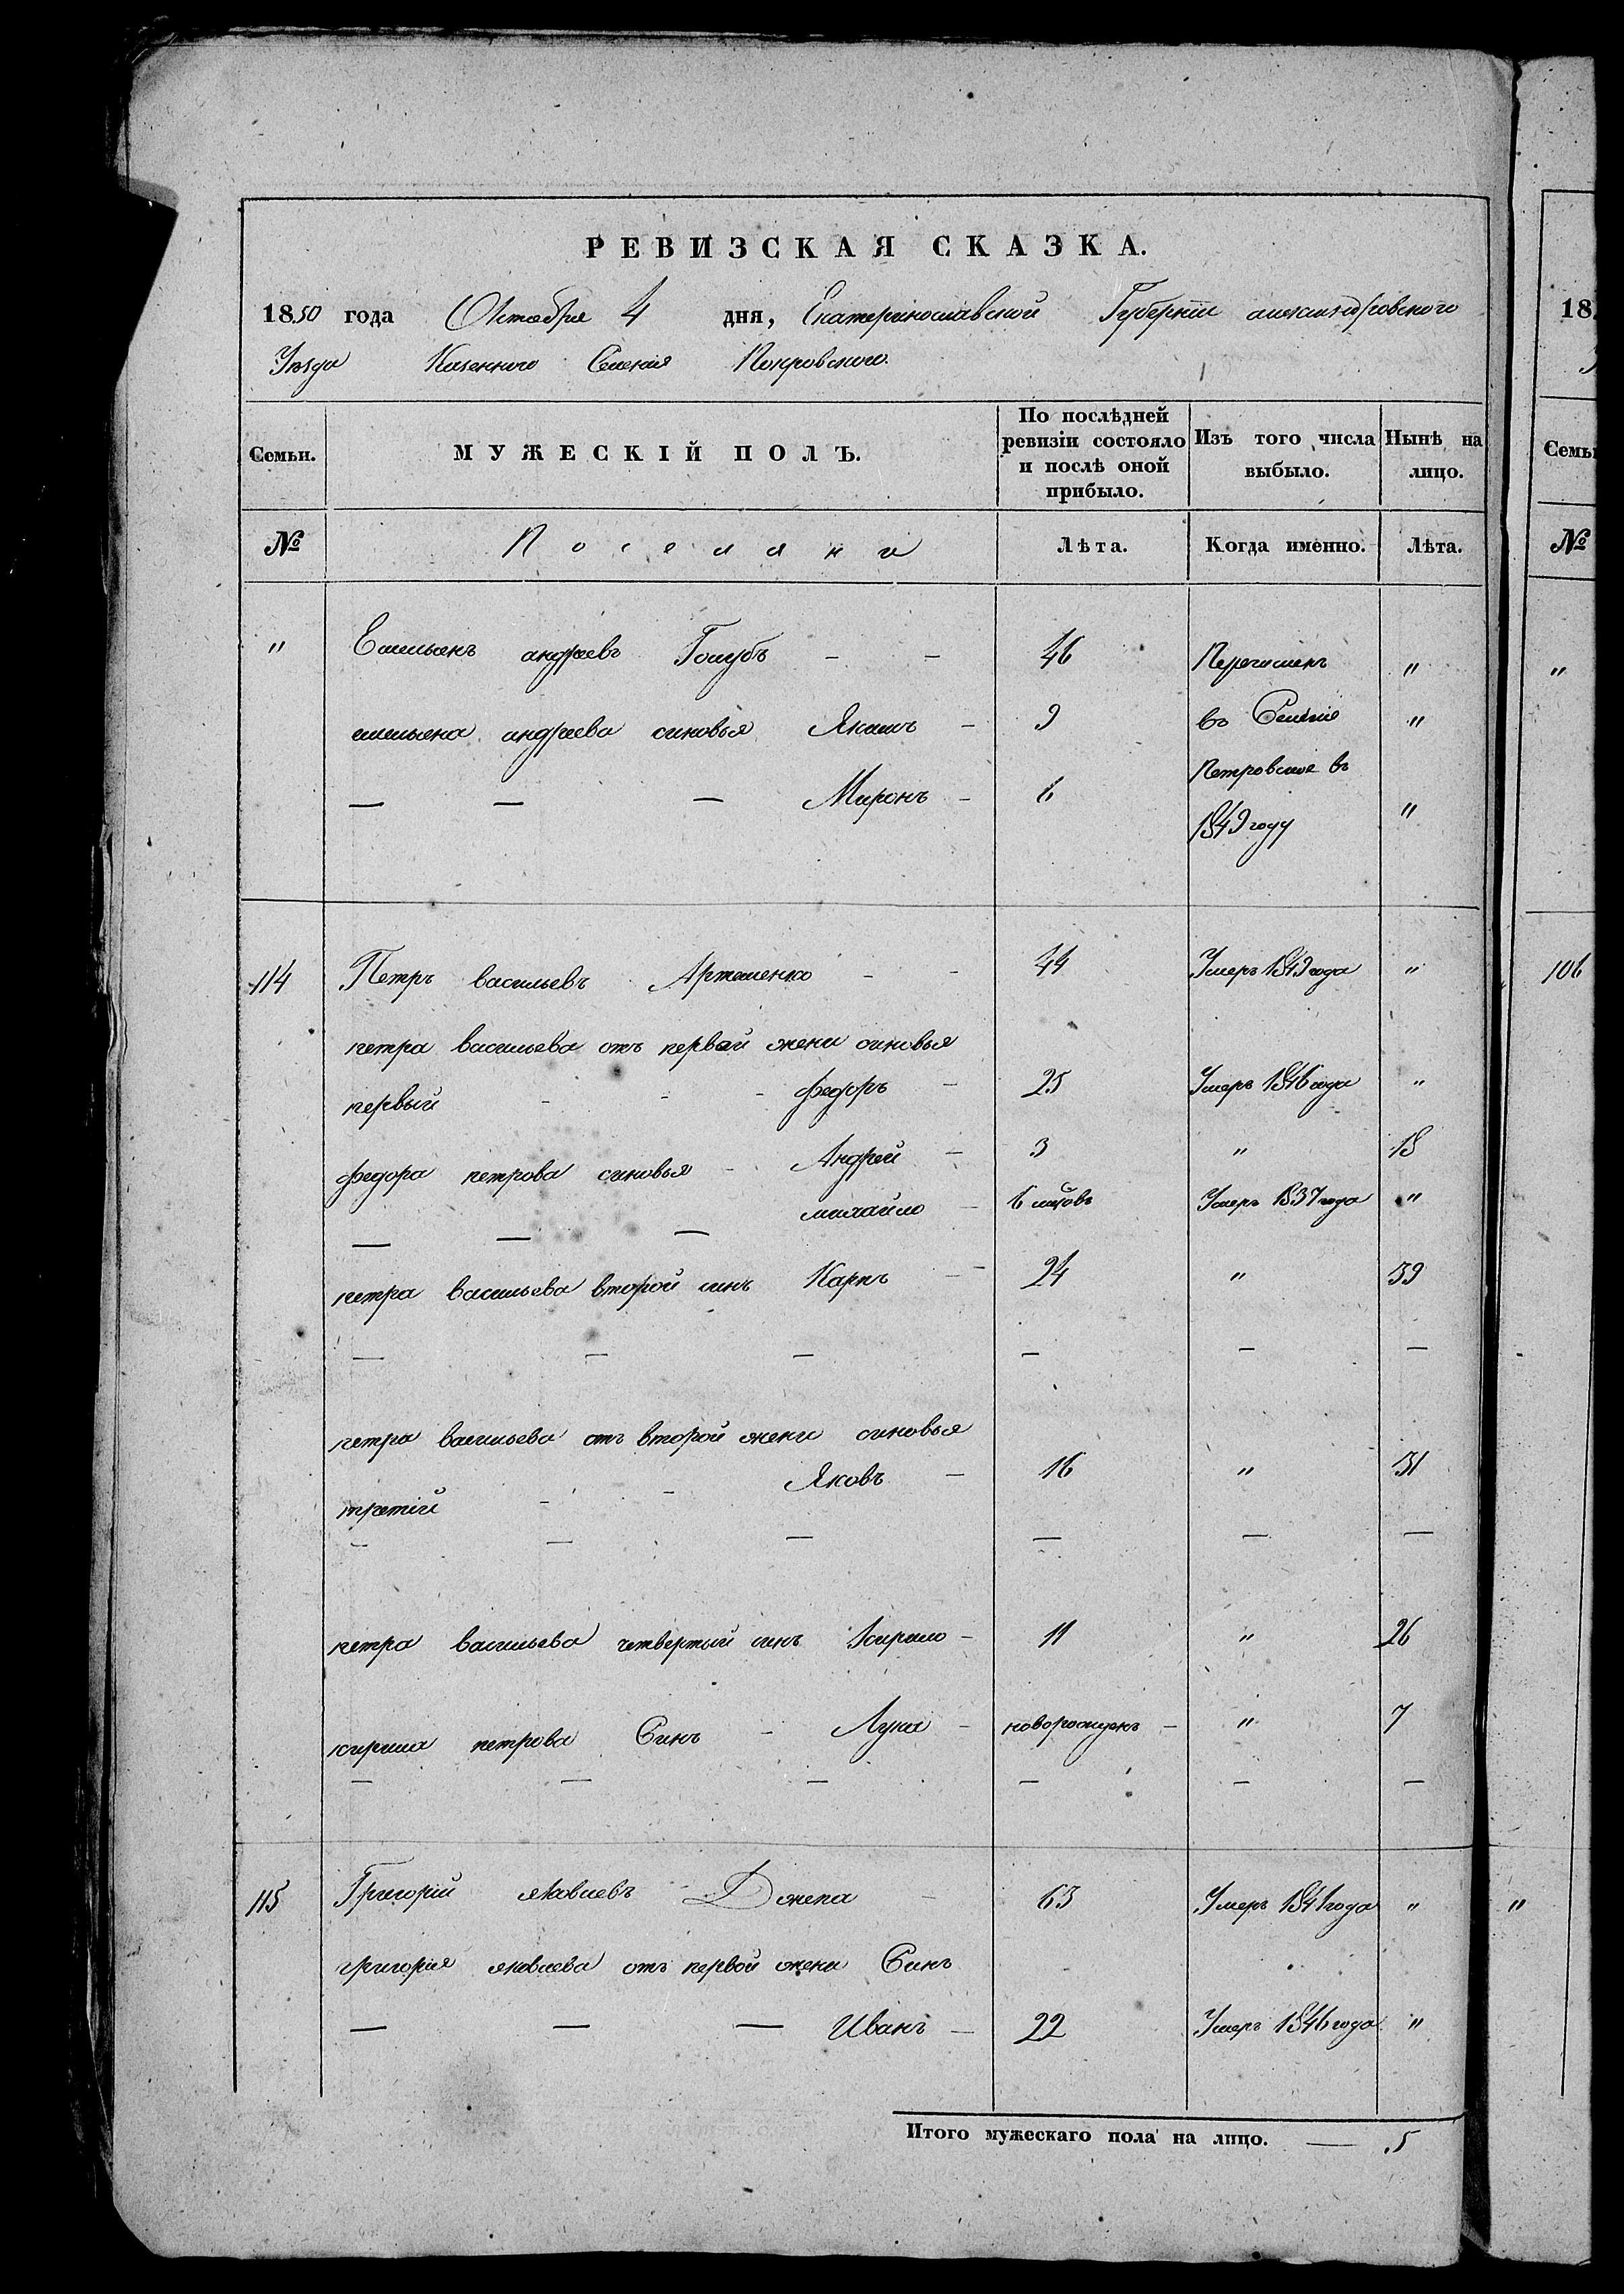 РЕВИЗСКАЯ СКАЗКА.
1850 года Октября 4 дня, Екатеринославской Губернии александровского
Уезда Казенного Селения Покровского.
Семьи. МУЖЕСКІЙ ПОЛЪ. По послѣдней ревизіи состояло и послѣ оной прибыло. Изъ того числа выбыло. Нынѣ на лицо.
№ Поселяни Лѣта. Когда именно. Лѣта.
" Емельянъ андреевъ Голубъ - - 46 Перечисленъ "
емельяна андреева синовья Якимъ - 9 въ Селение "
— — — Миронъ - 6 Петровское въ 1849 году "
114 Петръ васильевъ Артеменко - - 44 Умеръ 1849 года "
петра васильева отъ первой жени синовья
первый - - - федоръ - 25 Умеръ 1846 года "
федора петрова синовья - Андрей - 3 " 18
— — — михайло - 6 Умеръ 1837 года "
петра васильева второй синъ Карпъ - 24 " 39
— — — — — —
петра васильева отъ второй жени синовья
третій - - Яковъ - 16 " 31
— — — — — —
петра васильева четвертый синъ Кирило - 11 " 26
кирила петрова Синъ - Лука - новорожденъ - " 7
— — — — — —
115 Григорий яковлевъ Джепа - 63 Умеръ 1841 года "
григория яковлева отъ первой жени Синъ
— — — Иванъ - 22 Умеръ 1846 года "
Итого мужескаго пола на лицо. — 5
18
Семьи
№
"
106
"